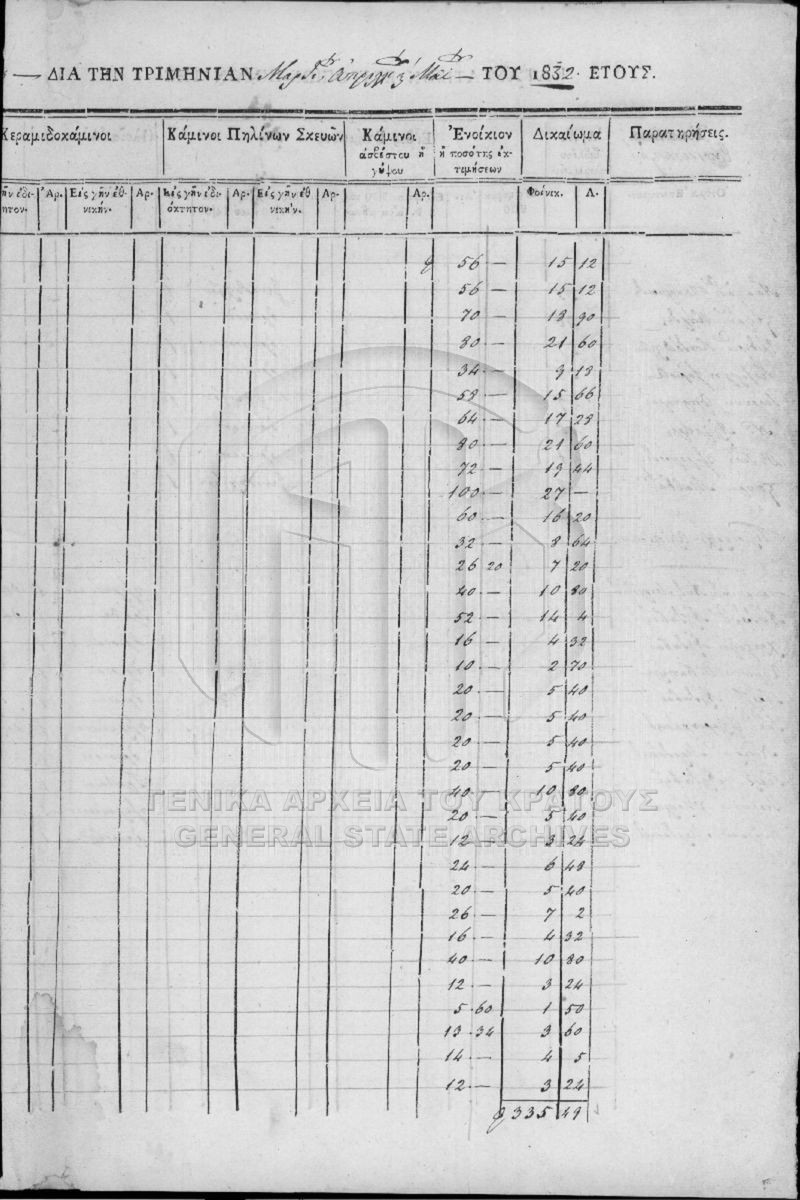 — ΔΙΑ ΤΗΝ ΤΡΙΜΗΝΙΑΝ — ΤΟΥ 1832. ΕΤΟΥΣ.
Κεραμιδοκάμινοι Κάμινοι Πηλίνων Σκευῶν Κάμινοι ἀσβέστου ἢ γύψου Ἐνοίκιον ἢ ποσότης ἐκτιμήσεων Δικαίωμα Παρατηρήσεις.
ῆν ἰδιητον. Ἀρ. Εἰς γῆν ἐθνικήν. Ἀρ. Εἰς γῆν ἰδιόκτητον. Ἀρ. Εἰς γῆν ἐθνικήν. Ἀρ. Ἀρ. Φοίνικ. Λ.
56 — 15 12
56 — 15 12
70 — 18 90
80 — 21 60
34 — 9 18
58 — 15 66
64 — 17 28
80 — 21 60
72 — 19 44
100 — 27 —
60 — 16 20
32 — 8 64
26 20 7 20
40 — 10 80
52 — 14 4
16 — 4 32
10 — 2 70
20 — 5 40
20 — 5 40
20 — 5 40
20 — 5 40
40 — 10 80
20 — 5 40
12 — 3 24
24 — 6 48
20 — 5 40
26 — 7 2
16 — 4 32
40 — 10 80
12 — 3 24
5 . 60 1 50
13 . 34 3 60
14 — 4 5
12 — 3 24
335 49
ΓΕΝΙΚΑ ΑΡΧΕΙΑ ΤΟΥ ΚΡΑΤΟΥΣ
GENERAL STATE ARCHIVES